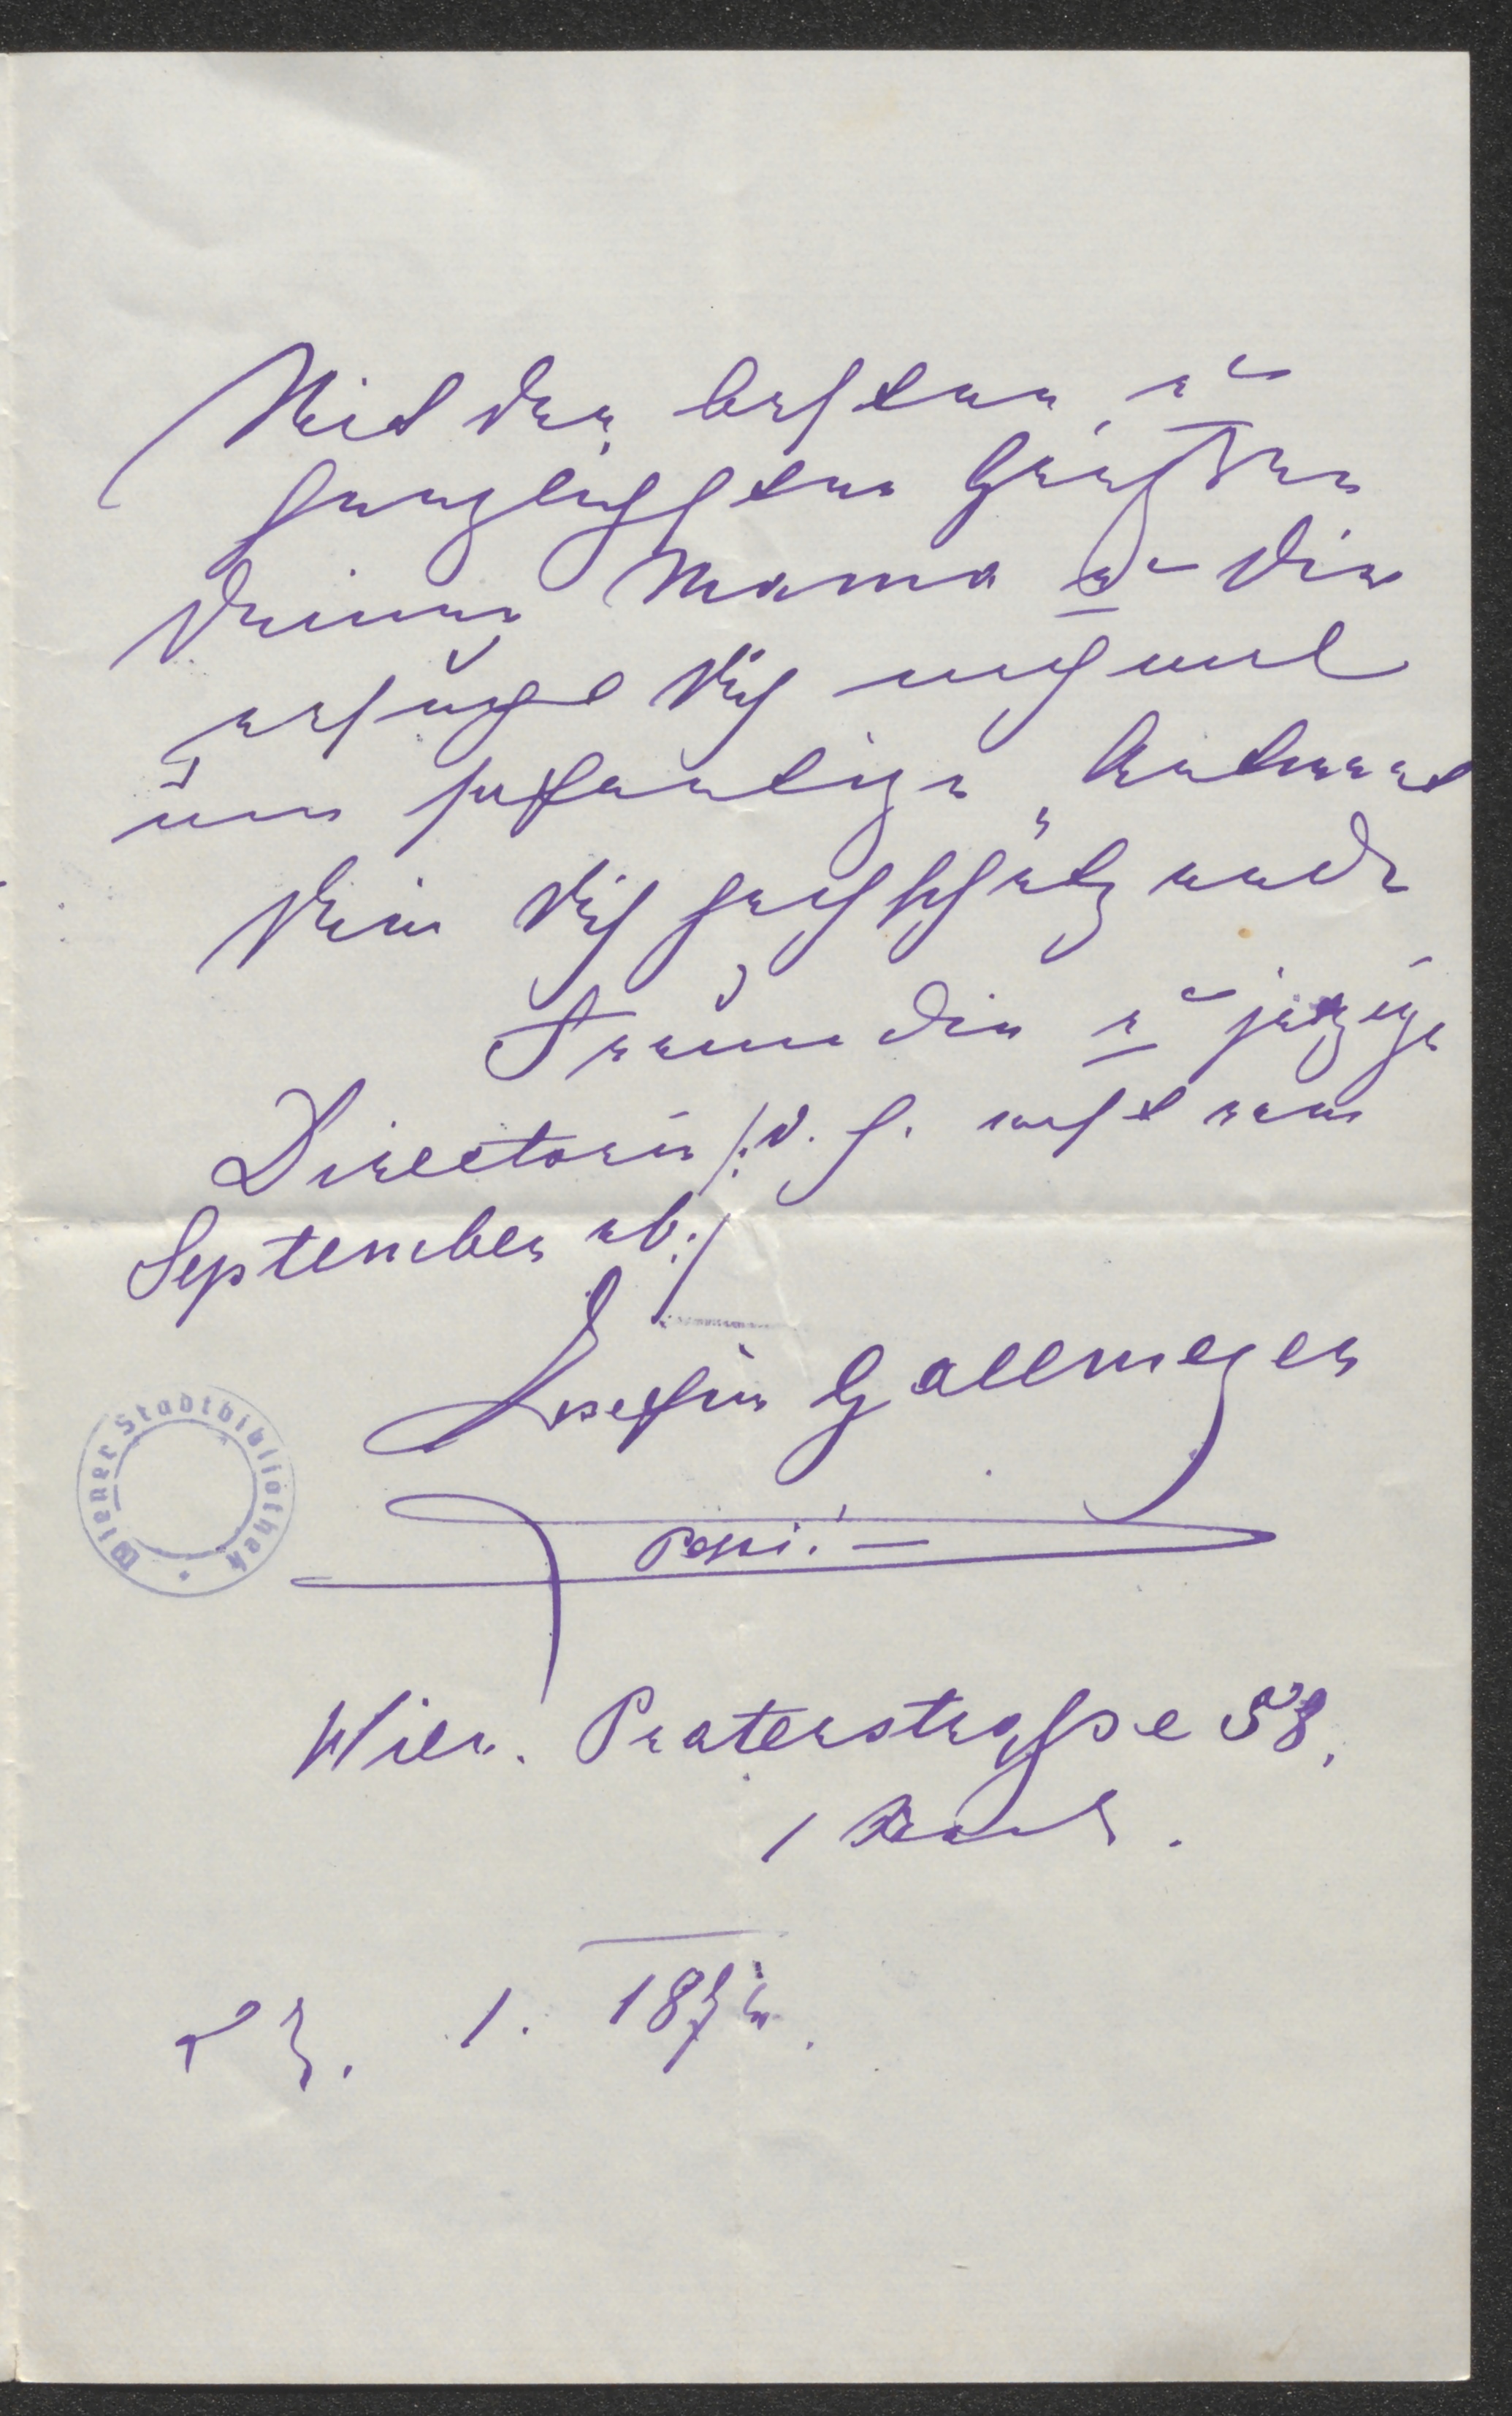 Mit den besten u
herzlichsten Grüßen
Deiner Mama u Dir
ersuche Dich nochmal
um sofortige Antwort
Deine Dich hochschätzende
Freundin u jetzige
Directorin /: d. h. erst vom
September ab :/
Josefin Gallmeyer
Pepi. —
Wien. Praterstrasse 58,
1 Stock.
23. 1. 187
Wiener Stadtbibliothek